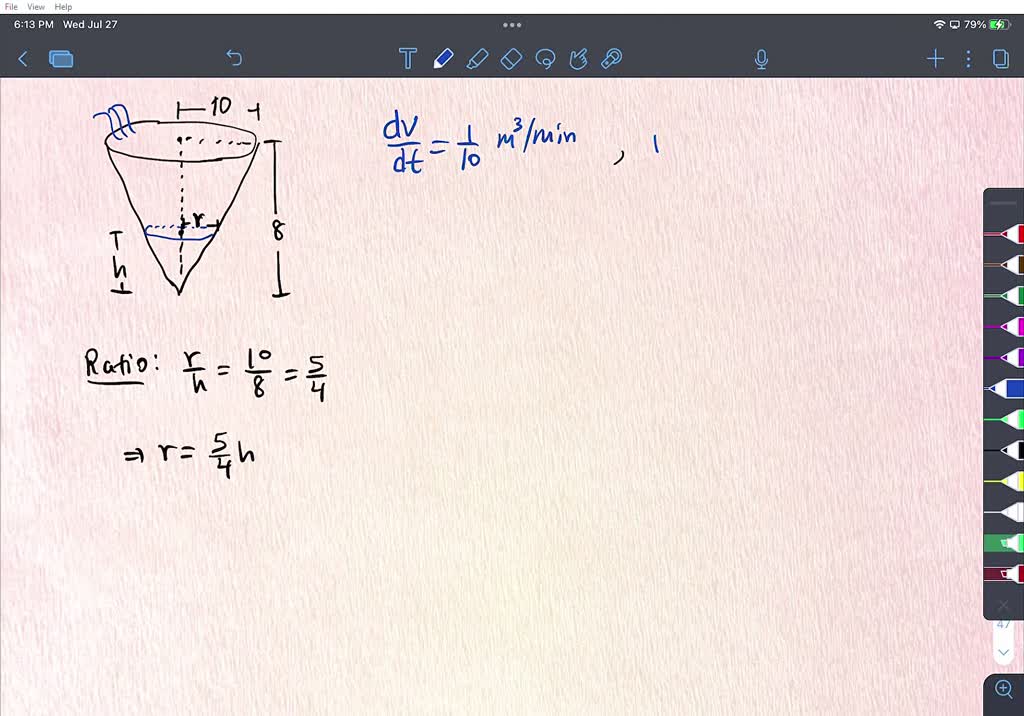 File View Help
6:13 PM Wed Jul 27
79%
T
10
r
8
h
dv/dt = 1/10 m³/min ,
Ratio: r/h = 10/8 = 5/4
⇒ r = 5/4 h
47